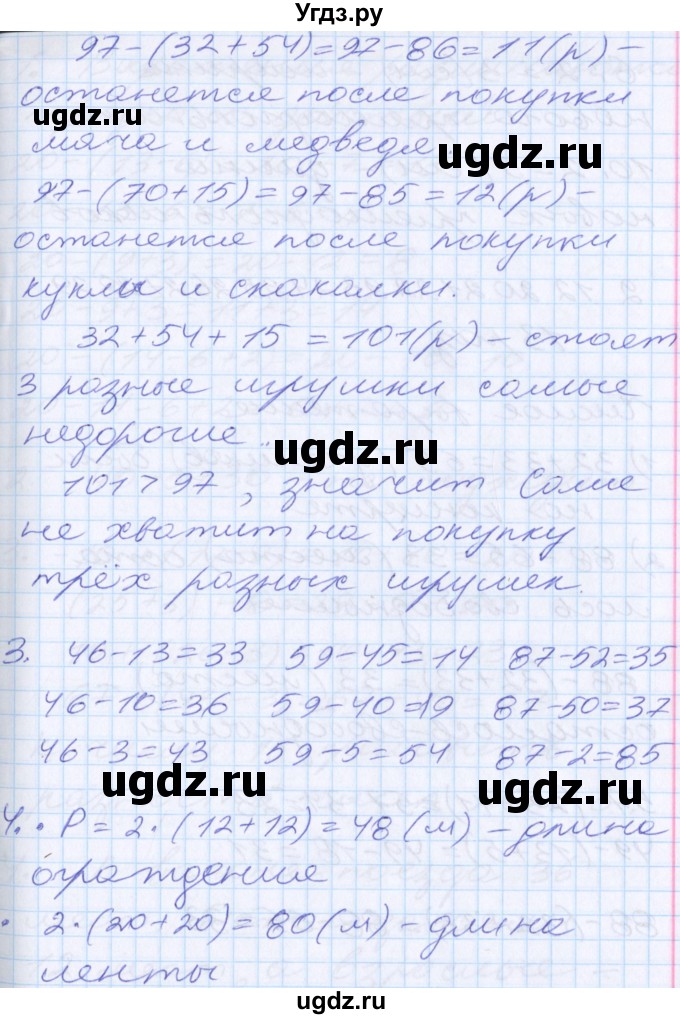 Угдз.ру
97-(32+54)=97-86=11(р)-
останется после покупки
мяча и медведя.
97-(70+15)=97-85=12(р)-
останется после покупки
куклы и скакалки.
32+54+15=101(р)-стоят
3 разные игрушки самые
недорогие.
101>97, значит Саше
не хватит на покупку
трёх разных игрушек.
3. 46-13=33 59-45=14 87-52=35
46-10=36 59-40=19 87-50=37
46-3=43 59-5=54 87-2=85
4. • P=2·(12+12)=48(м)-длина
ограждения
• 2·(20+20)=80(м)-длина
ленты
ugdz.ru
ugdz.ru
ugdz.ru
ugdz.ru
ugdz.ru
ugdz.ru